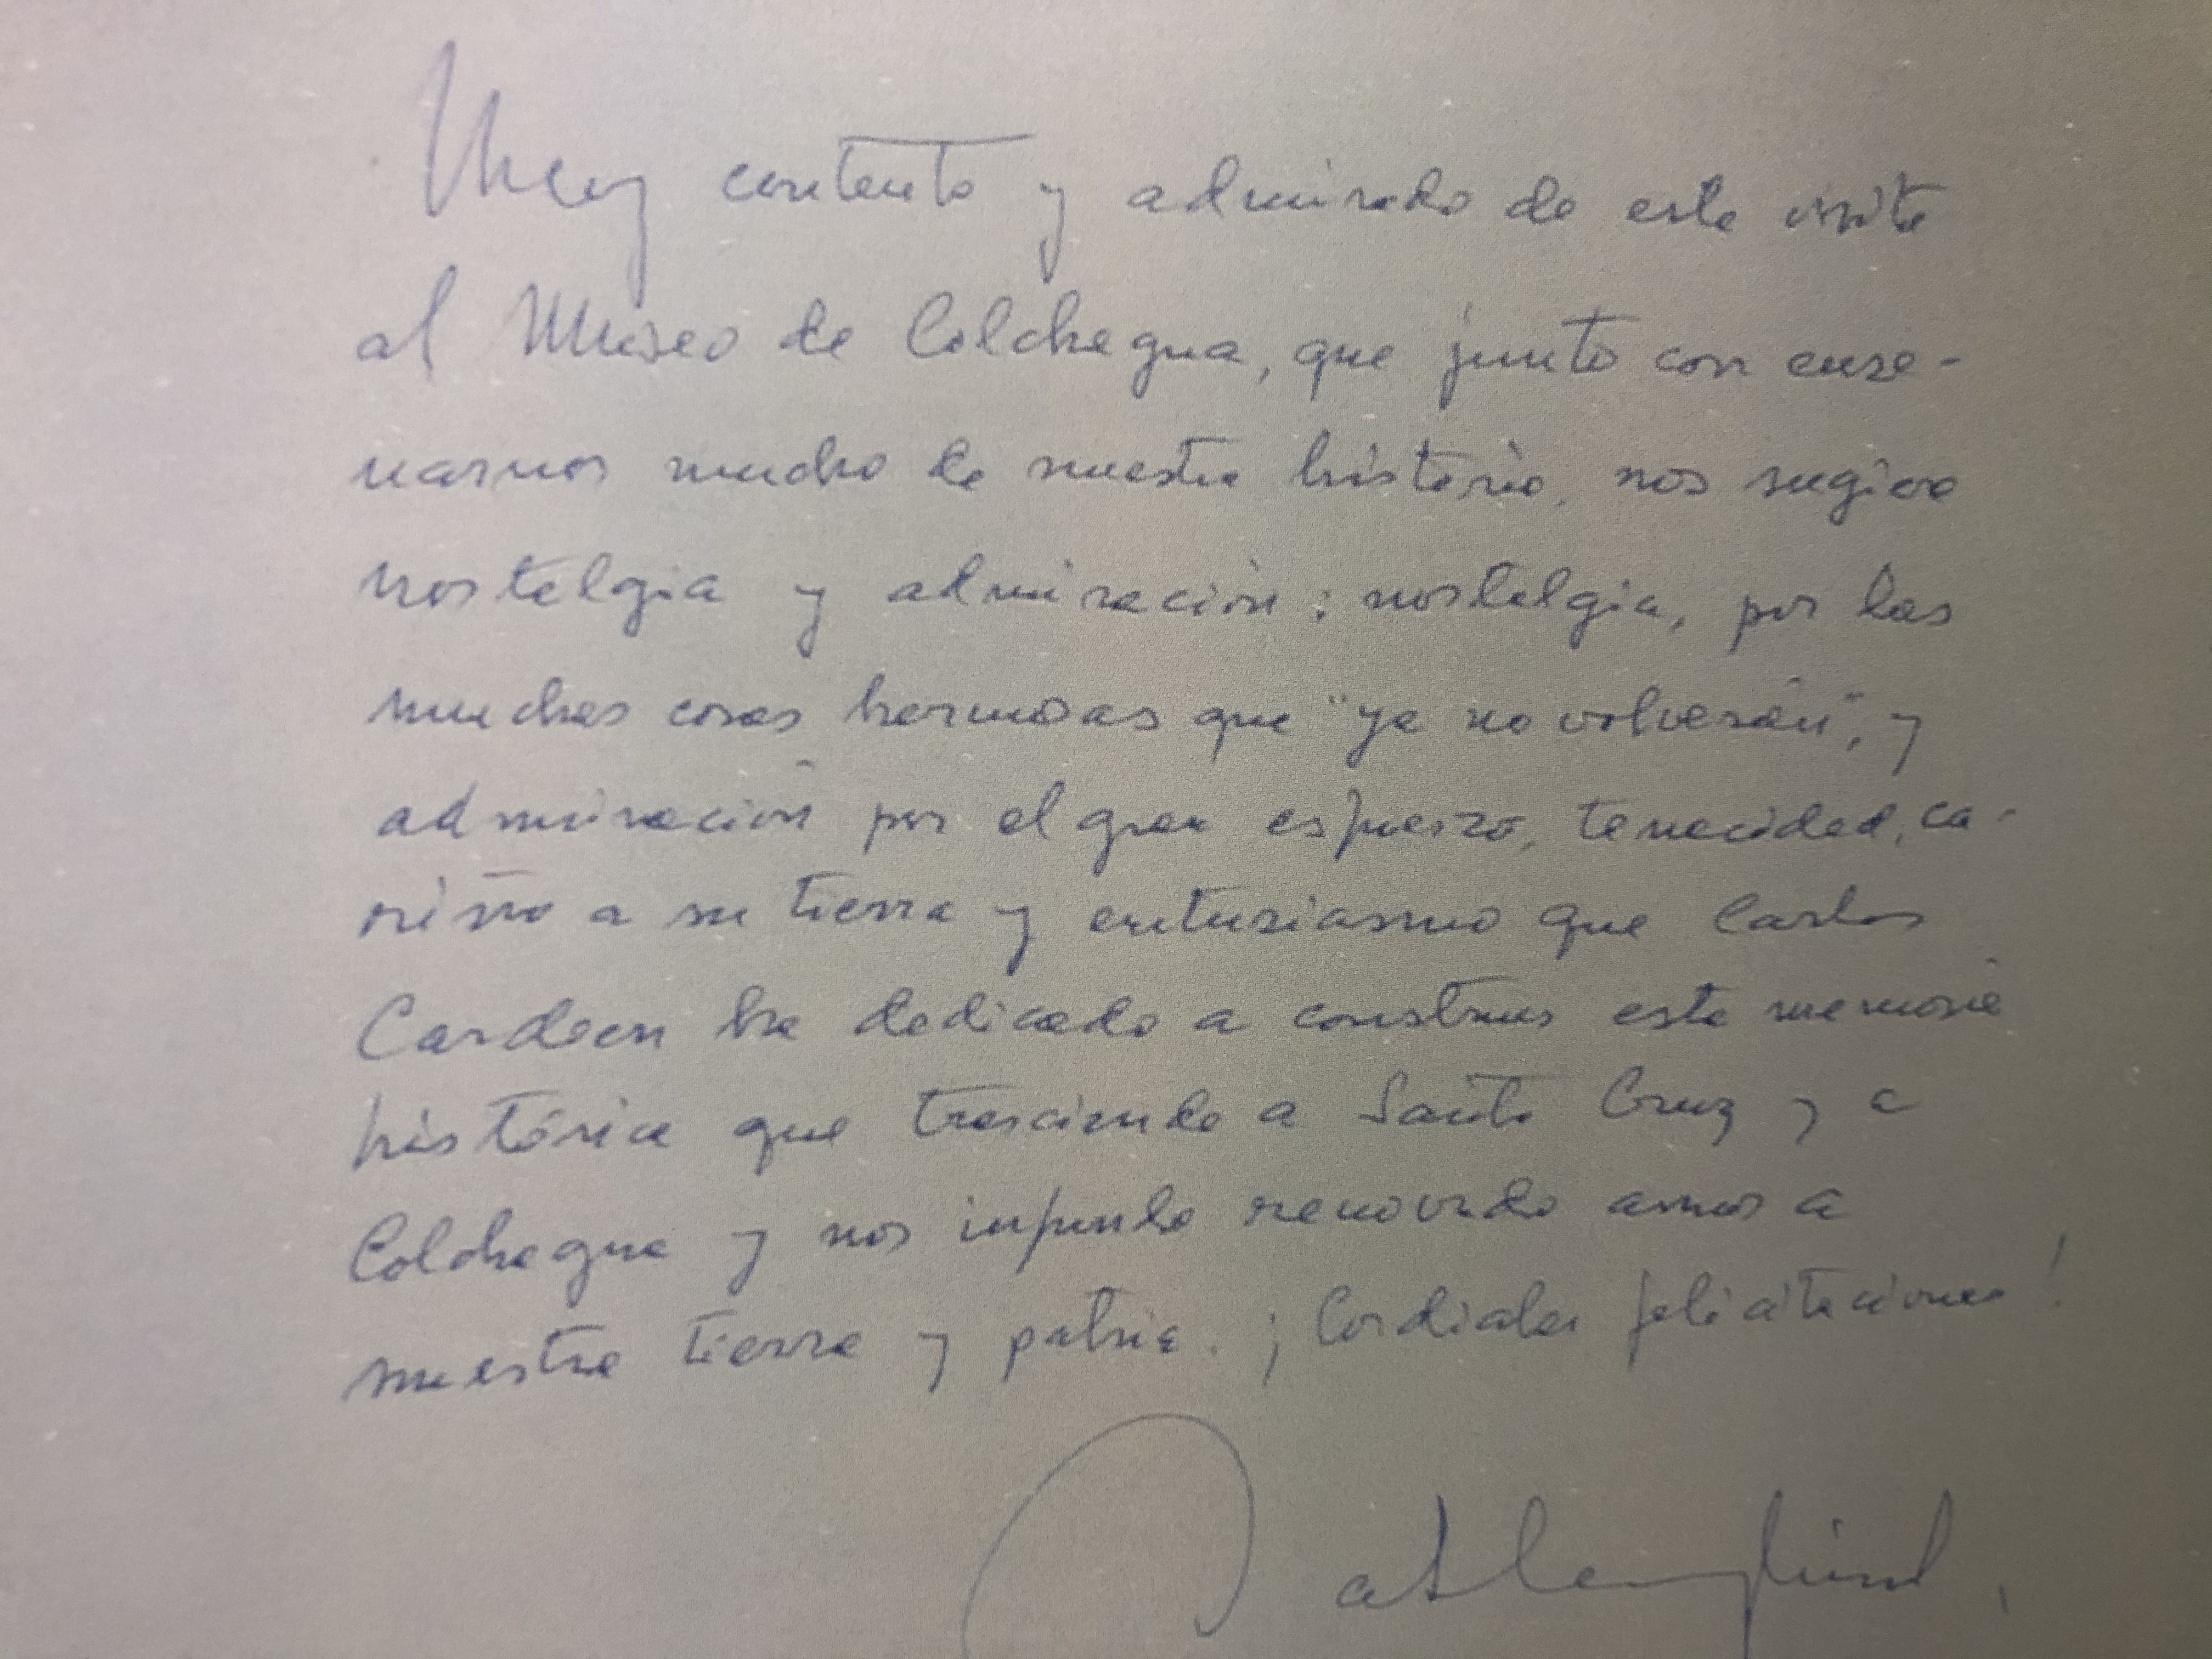 Muy contento y admirado de esta visita
al Museo de Colchagua, que junto con ense-
ñarnos mucho de nuestra historia, nos sugiere
nostalgia y admiración: nostalgia, por las
muchas cosas hermosas que "ya no volverán", y
admiración por el gran esfuerzo, tenacidad, ca-
riño a su tierra y entusiasmo que Carlos
Cardoen ha dedicado a construir esta memoria
histórica que trasciende a Santa Cruz y a
Colchagua y nos infunde renovado amor a
nuestra tierra y patria. ¡Cordiales felicitaciones!